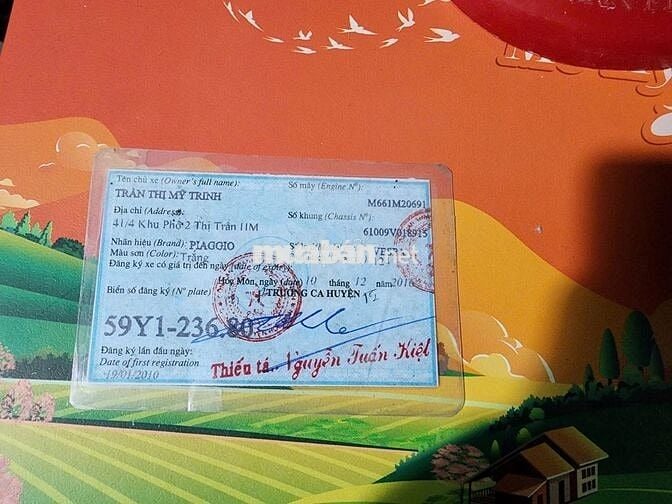 Tên chủ xe (Owner's full name):
TRẦN THỊ MỸ TRINH
Số máy (Engine Nº):
M661M20691
Địa chỉ (Address)
41/4 Khu Phố 2 Thị Trấn HM
Số khung (Chassis Nº)
61009V018915
Nhãn hiệu (Brand): PIAGGIO
Màu sơn (Color): Trắng
muaban.net
Đăng ký xe có giá trị đến ngày (date of expiry)
Hóc Môn, ngày (date) 10 tháng 12 năm 2016
Biển số đăng ký (Nº plate)
TRƯỞNG CA HUYỆN
59Y1-236.80
Đăng ký lần đầu ngày:
Date of first registration
19/01/2010
Thiếu tá.. Nguyễn Tuấn Kiệt